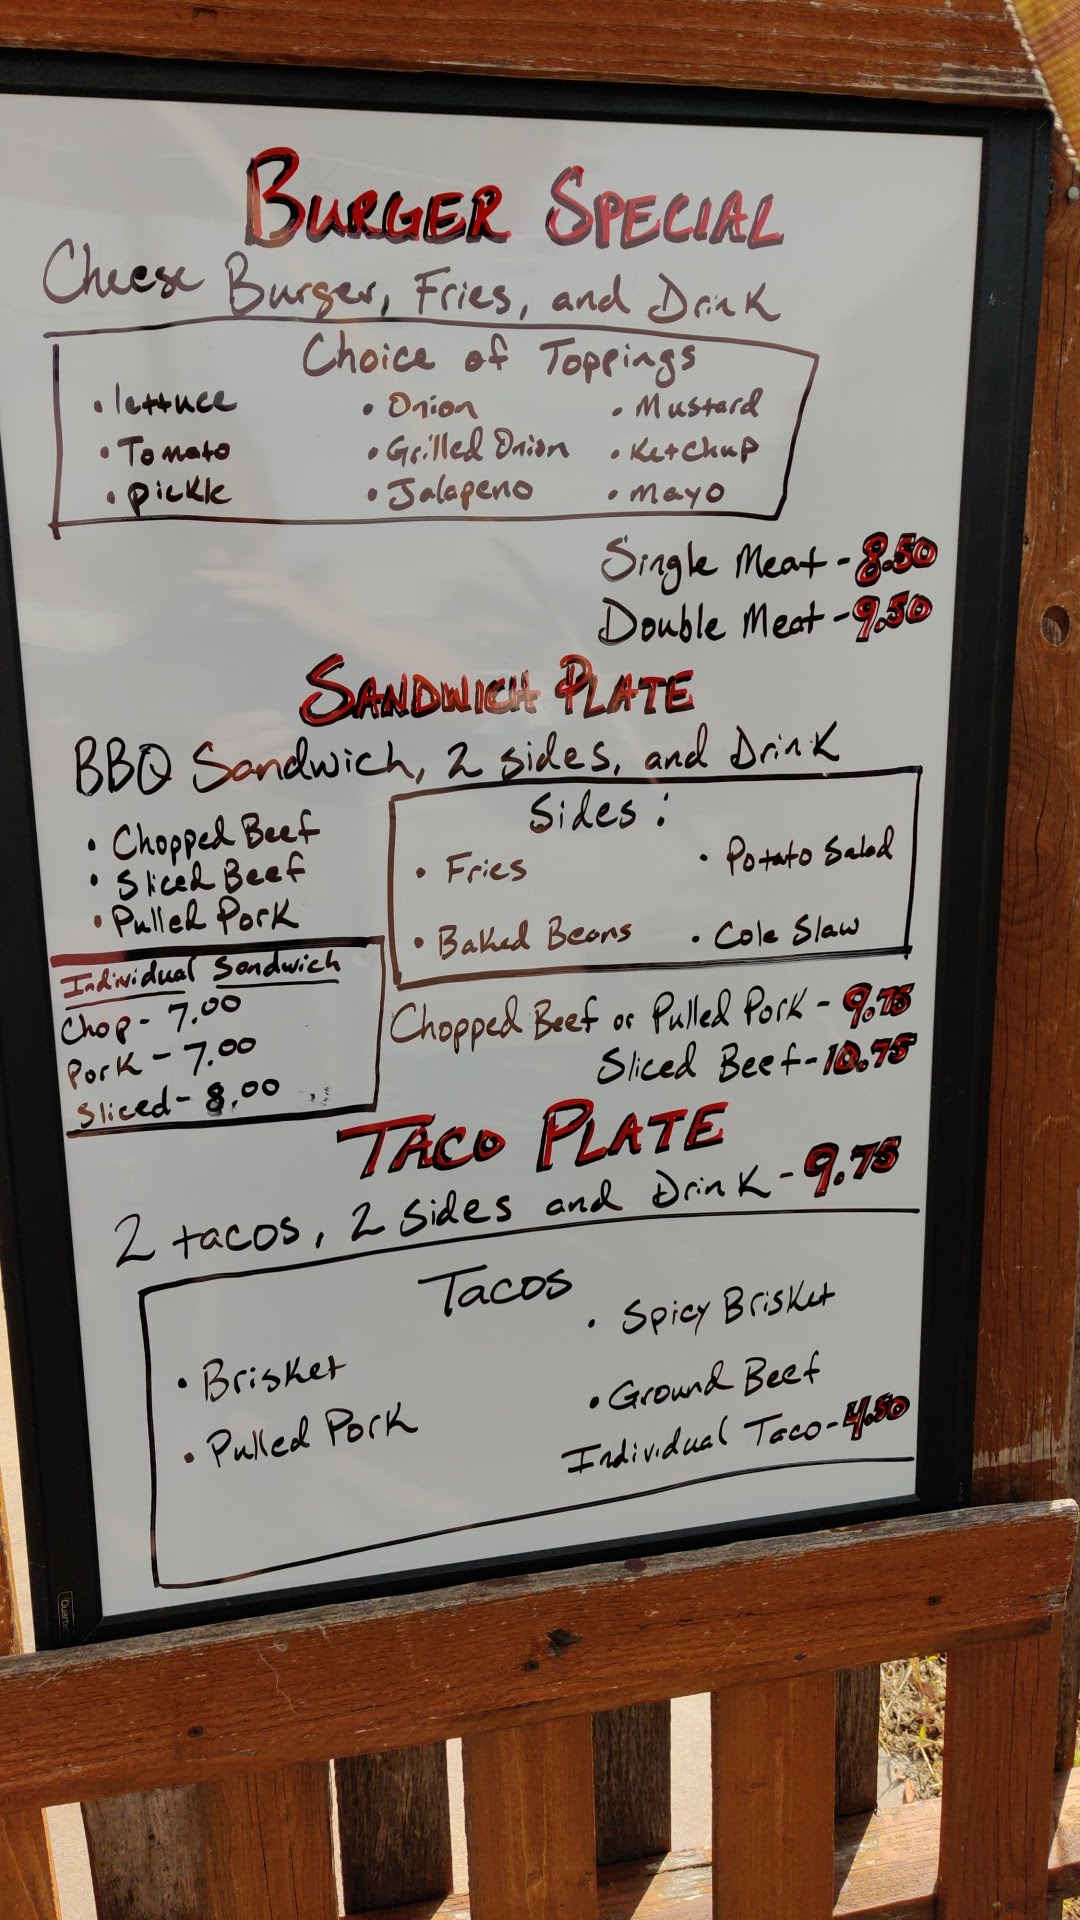 BURGER SPECIAL
Cheese Burger, Fries, and Drink
Choice of Toppings
• lettuce • Onion • Mustard
• Tomato • Grilled Onion • Ketchup
• pickle • Jalapeno • mayo
Single Meat - 8.50
Double Meat - 9.50
SANDWICH PLATE
BBQ Sandwich, 2 sides, and Drink
• Chopped Beef
• Sliced Beef
• Pulled Pork
Sides :
• Fries • Potato Salad
• Baked Beans • Cole Slaw
Individual Sandwich
Chop - 7.00
Pork - 7.00
Sliced - 8.00
Chopped Beef or Pulled Pork - 9.75
Sliced Beef - 10.75
TACO PLATE
2 tacos, 2 sides and Drink - 9.75
Tacos
• Brisket • Spicy Brisket
• Pulled Pork • Ground Beef
Individual Taco - 4.50